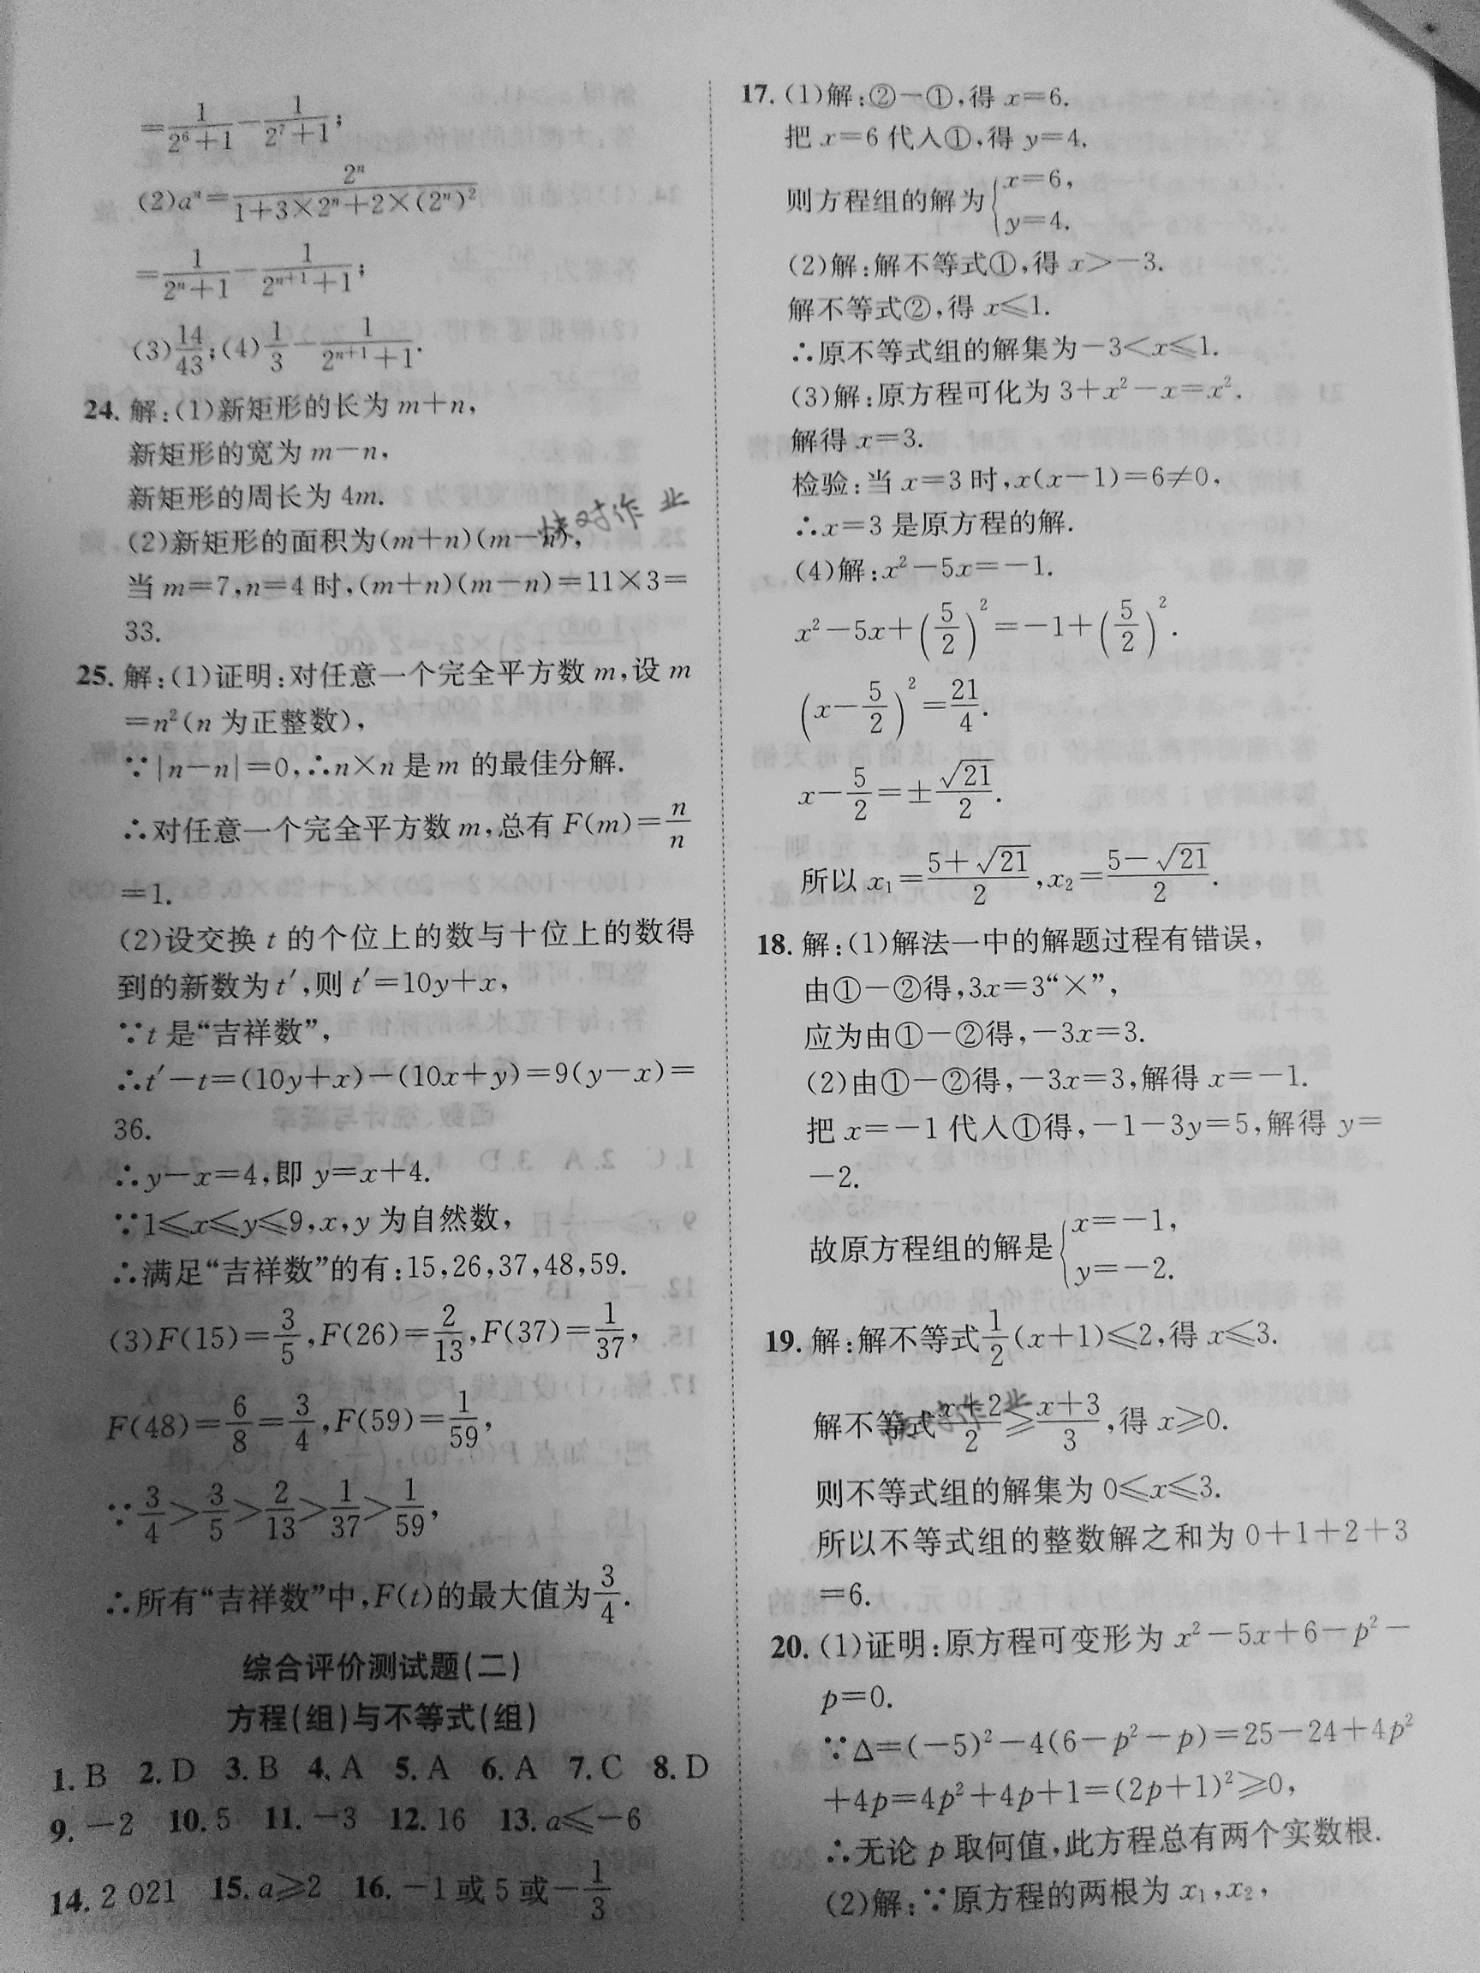 =1/(2⁶+1)-1/(2⁷+1);
(2)aⁿ=2ⁿ/(1+3×2ⁿ+2×(2ⁿ)²)
=1/(2ⁿ+1)-1/(2ⁿ⁺¹+1);
(3)14/43;(4)1/3-1/(2ⁿ⁺¹+1).
24.解:(1)新矩形的长为m+n,
新矩形的宽为m-n,
新矩形的周长为4m.
快对作业
(2)新矩形的面积为(m+n)(m-n),
当m=7,n=4时,(m+n)(m-n)=11×3=
33.
25.解:(1)证明:对任意一个完全平方数m,设m
=n²(n为正整数),
∵|n-n|=0,∴n×n是m的最佳分解.
∴对任意一个完全平方数m,总有F(m)=n/n
=1.
(2)设交换t的个位上的数与十位上的数得
到的新数为t′,则t′=10y+x,
∵t是“吉祥数”,
∴t′-t=(10y+x)-(10x+y)=9(y-x)=
36.
∴y-x=4,即y=x+4.
∵1⩽x⩽y⩽9,x,y为自然数,
∴满足“吉祥数”的有:15,26,37,48,59.
(3)F(15)=3/5,F(26)=2/13,F(37)=1/37,
F(48)=6/8=3/4,F(59)=1/59,
∵3/4>3/5>2/13>1/37>1/59,
∴所有“吉祥数”中,F(t)的最大值为3/4.
综合评价测试题(二)
方程(组)与不等式(组)
1.B 2.D 3.B 4.A 5.A 6.A 7.C 8.D
9.-2 10.5 11.-3 12.16 13.a⩽-6
14.2 021 15.a⩾2 16.-1或5或-1/3
17.(1)解:②-①,得x=6.
把x=6代人①,得y=4.
则方程组的解为{x=6,
y=4.
(2)解:解不等式①,得x>-3.
解不等式②,得x⩽1.
∴原不等式组的解集为-3<x⩽1.
(3)解:原方程可化为3+x²-x=x².
解得x=3.
检验:当x=3时,x(x-1)=6≠0,
∴x=3是原方程的解.
(4)解:x²-5x=-1.
x²-5x+(5/2)²=-1+(5/2)².
(x-5/2)²=21/4.
x-5/2=±√21/2.
所以x₁=(5+√21)/2,x₂=(5-√21)/2.
18.解:(1)解法一中的解题过程有错误,
由①-②得,3x=3“×”,
应为由①-②得,-3x=3.
(2)由①-②得,-3x=3,解得x=-1.
把x=-1代人①得,-1-3y=5,解得y=
-2.
故原方程组的解是{x=-1,
y=-2.
19.解:解不等式1/2(x+1)⩽2,得x⩽3.
解不等式(x+2)/2⩾(x+3)/3,得x⩾0.
快对作业
则不等式组的解集为0⩽x⩽3.
所以不等式组的整数解之和为0+1+2+3
=6.
20.(1)证明:原方程可变形为x²-5x+6-p²-
p=0.
∵Δ=(-5)²-4(6-p²-p)=25-24+4p²
+4p=4p²+4p+1=(2p+1)²⩾0,
∴无论p取何值,此方程总有两个实数根.
(2)解:∵原方程的两根为x₁,x₂,